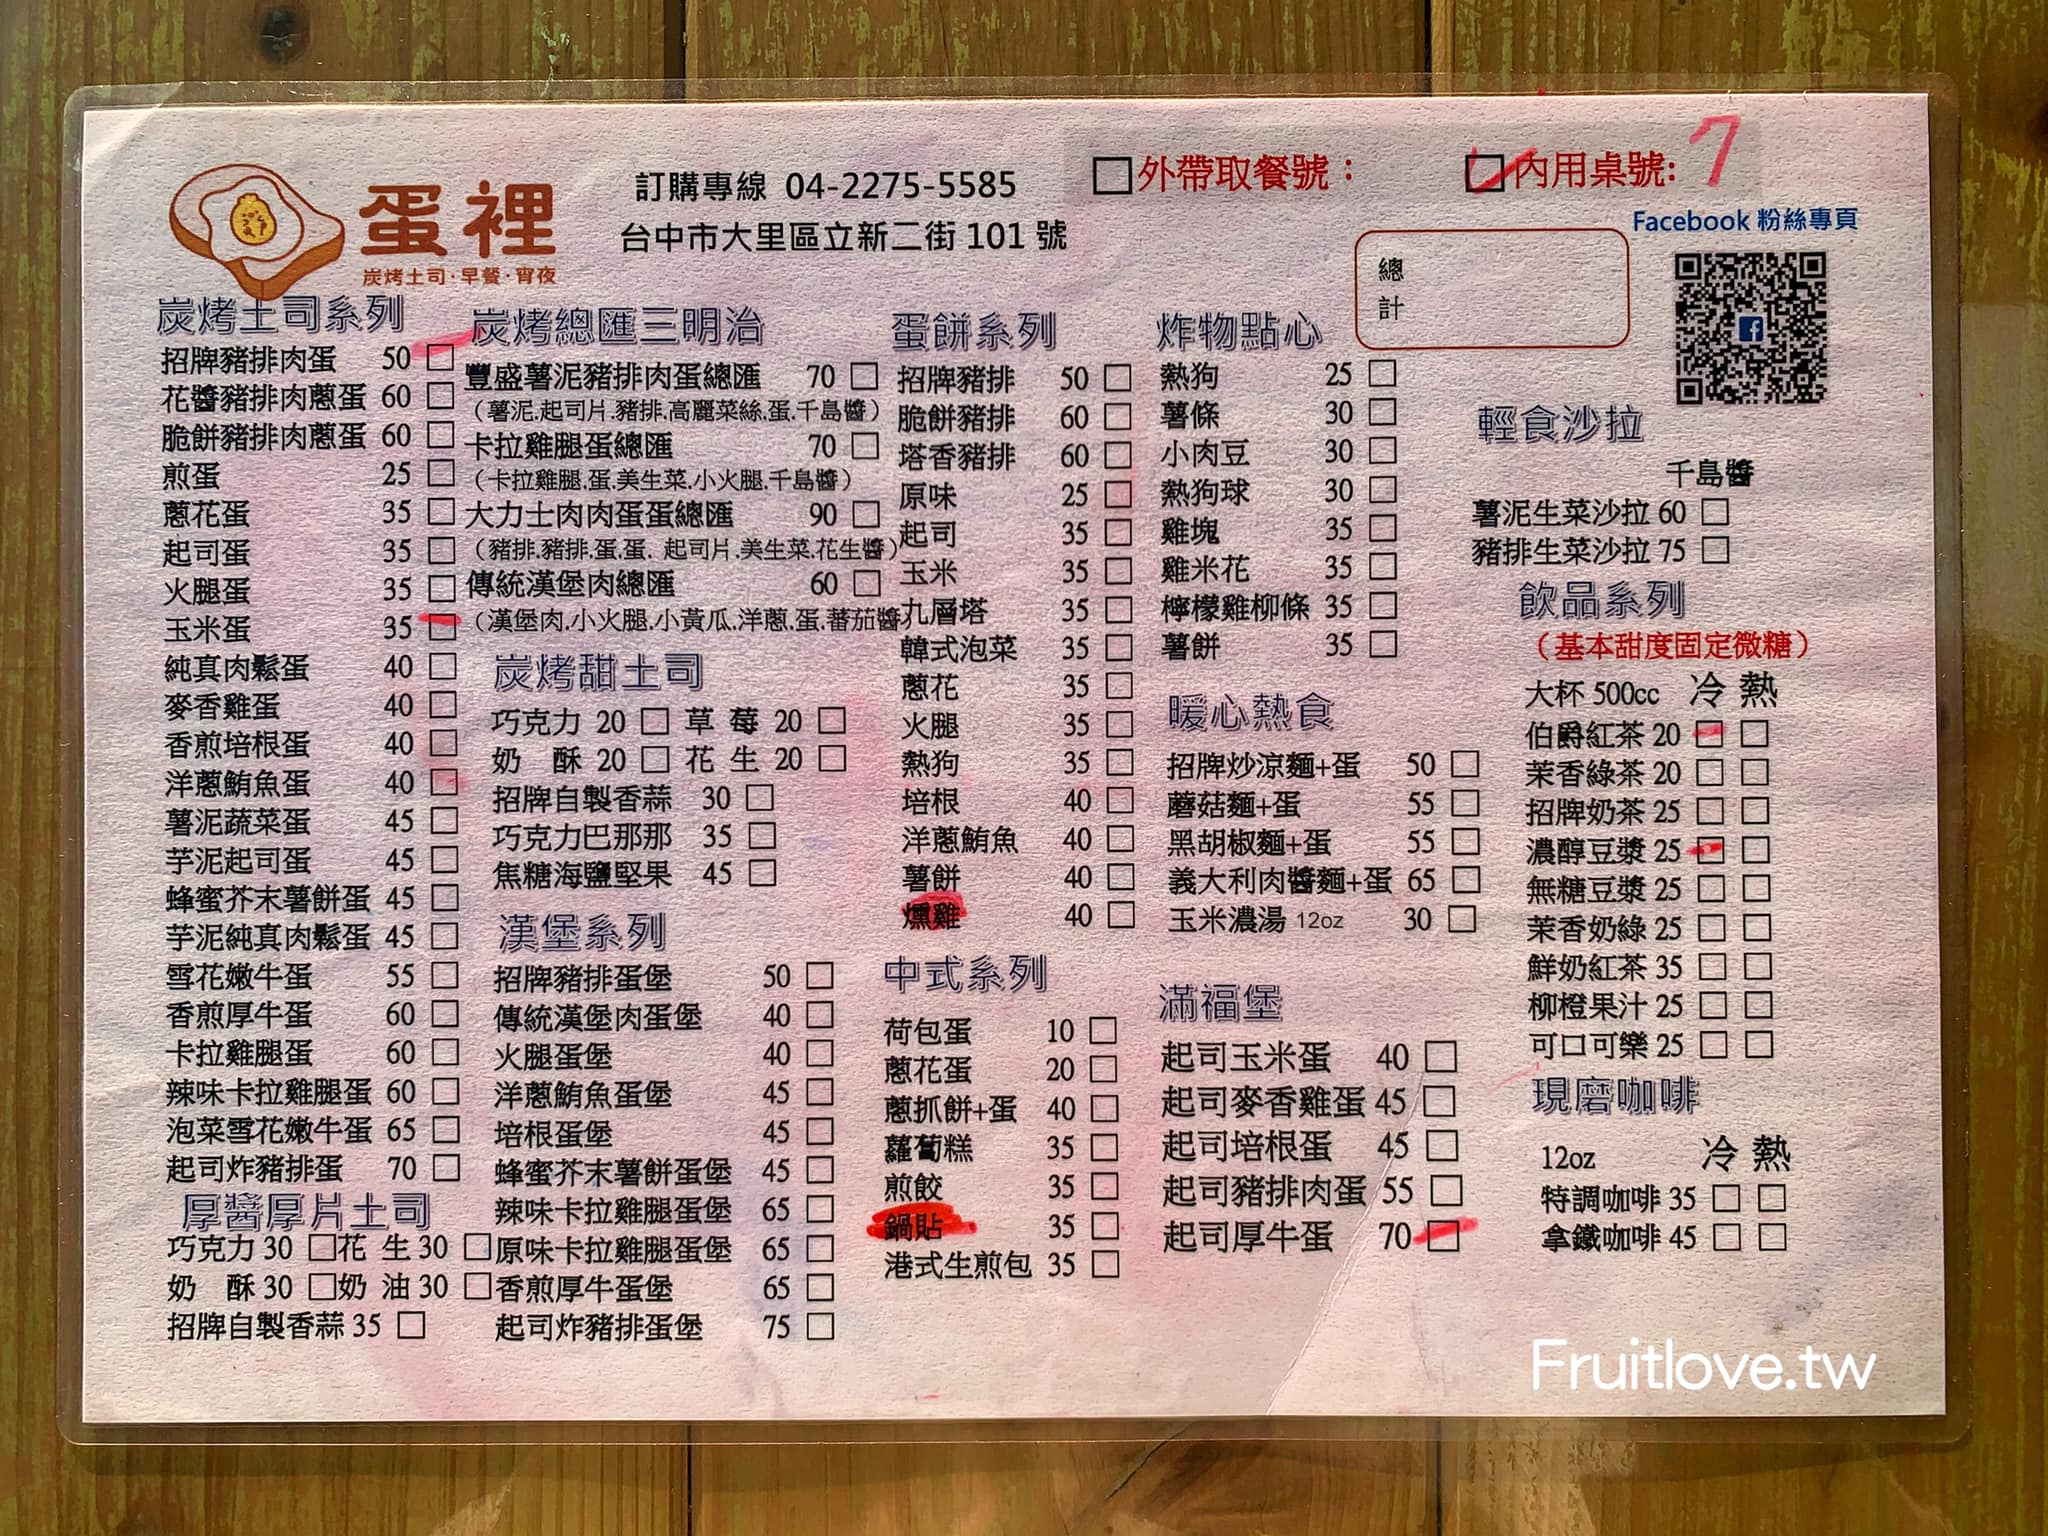 蛋裡
炭烤土司·早餐·宵夜
訂購專線 04-2275-5585
台中市大里區立新二街 101 號
□外帶取餐號：
□內用桌號: 7
總計
Facebook 粉絲專頁
炭烤土司系列
招牌豬排肉蛋 50 □
花醬豬排肉蔥蛋 60 □
脆餅豬排肉蔥蛋 60 □
煎蛋 25 □
蔥花蛋 35 □
起司蛋 35 □
火腿蛋 35 □
玉米蛋 35 □
純真肉鬆蛋 40 □
麥香雞蛋 40 □
香煎培根蛋 40 □
洋蔥鮪魚蛋 40 □
薯泥蔬菜蛋 45 □
芋泥起司蛋 45 □
蜂蜜芥末薯餅蛋 45 □
芋泥純真肉鬆蛋 45 □
雪花嫩牛蛋 55 □
香煎厚牛蛋 60 □
卡拉雞腿蛋 60 □
辣味卡拉雞腿蛋 60 □
泡菜雪花嫩牛蛋 65 □
起司炸豬排蛋 70 □
厚醬厚片土司
巧克力 30 □ 花 生 30 □
奶 酥 30 □ 奶 油 30 □
招牌自製香蒜 35 □
炭烤總匯三明治
豐盛薯泥豬排肉蛋總匯 70 □
（薯泥.起司片.豬排.高麗菜絲.蛋.千島醬）
卡拉雞腿蛋總匯 70 □
（卡拉雞腿.蛋.美生菜.小火腿.千島醬）
大力士肉肉蛋蛋總匯 90 □
（豬排.豬排.蛋.蛋. 起司片.美生菜.花生醬）
傳統漢堡肉總匯 60 □
（漢堡肉.小火腿.小黃瓜.洋蔥.蛋.蕃茄醬）
炭烤甜土司
巧克力 20 □ 草 莓 20 □
奶 酥 20 □ 花 生 20 □
招牌自製香蒜 30 □
巧克力巴那那 35 □
焦糖海鹽堅果 45 □
漢堡系列
招牌豬排蛋堡 50 □
傳統漢堡肉蛋堡 40 □
火腿蛋堡 40 □
洋蔥鮪魚蛋堡 45 □
培根蛋堡 45 □
蜂蜜芥末薯餅蛋堡 45 □
辣味卡拉雞腿蛋堡 65 □
原味卡拉雞腿蛋堡 65 □
香煎厚牛蛋堡 65 □
起司炸豬排蛋堡 75 □
蛋餅系列
招牌豬排 50 □
脆餅豬排 60 □
塔香豬排 60 □
原味 25 □
起司 35 □
玉米 35 □
九層塔 35 □
韓式泡菜 35 □
蔥花 35 □
火腿 35 □
熱狗 35 □
培根 40 □
洋蔥鮪魚 40 □
薯餅 40 □
燻雞 40 □
中式系列
荷包蛋 10 □
蔥花蛋 20 □
蔥抓餅+蛋 40 □
蘿蔔糕 35 □
煎餃 35 □
鍋貼 35 □
港式生煎包 35 □
炸物點心
熱狗 25 □
薯條 30 □
小肉豆 30 □
熱狗球 30 □
雞塊 35 □
雞米花 35 □
檸檬雞柳條 35 □
薯餅 35 □
暖心熱食
招牌炒涼麵+蛋 50 □
蘑菇麵+蛋 55 □
黑胡椒麵+蛋 55 □
義大利肉醬麵+蛋 65 □
玉米濃湯 12oz 30 □
滿福堡
起司玉米蛋 40 □
起司麥香雞蛋 45 □
起司培根蛋 45 □
起司豬排肉蛋 55 □
起司厚牛蛋 70 □
輕食沙拉
千島醬
薯泥生菜沙拉 60 □
豬排生菜沙拉 75 □
飲品系列
（基本甜度固定微糖）
大杯 500cc 冷 熱
伯爵紅茶 20 □ □
茉香綠茶 20 □ □
招牌奶茶 25 □ □
濃醇豆漿 25 □ □
無糖豆漿 25 □ □
茉香奶綠 25 □ □
鮮奶紅茶 35 □ □
柳橙果汁 25 □ □
可口可樂 25 □ □
現磨咖啡
12oz 冷 熱
特調咖啡 35 □ □
拿鐵咖啡 45 □ □
Fruitlove.tw